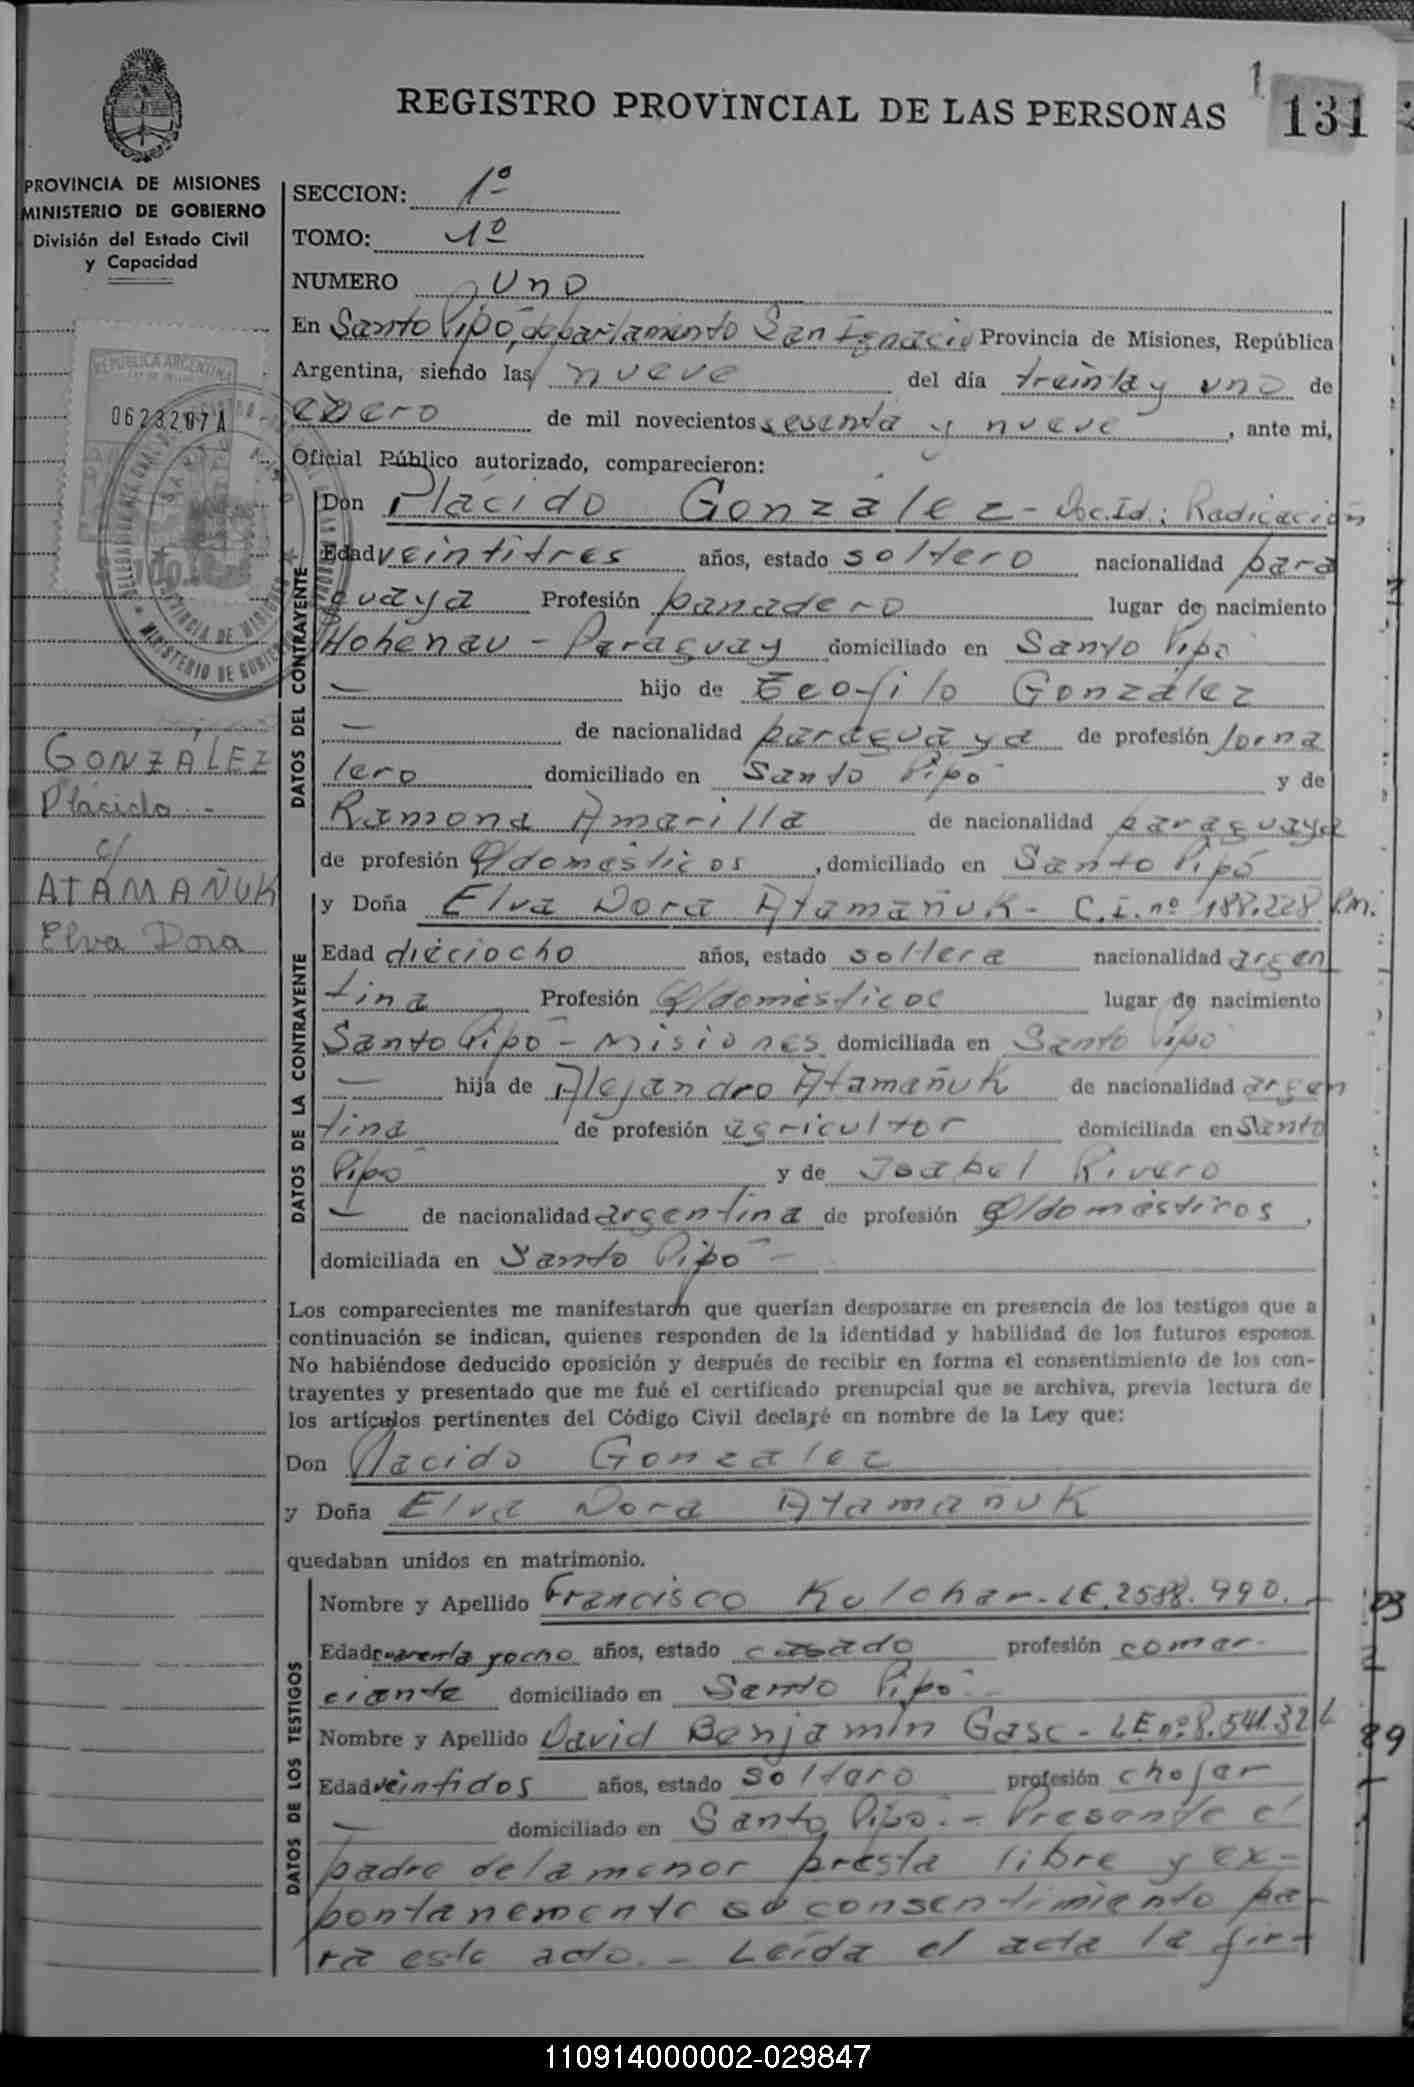 1
REGISTRO PROVINCIAL DE LAS PERSONAS 131
PROVINCIA DE MISIONES
MINISTERIO DE GOBIERNO
División del Estado Civil
y Capacidad
REPUBLICA ARGENTINA
0623207A
GONZÁLEZ
Plácido.-
c/
ATAMAÑUK
Elva Dora
SECCION: 1º
TOMO: 1º
NUMERO Uno
En Santo Pipó, departamento San Ignacio Provincia de Misiones, República
Argentina, siendo las nueve del día treinta y uno de
enero de mil novecientos sesenta y nueve, ante mi,
Oficial Público autorizado, comparecieron:
DATOS DEL CONTRAYENTE
Don Plácido González - Doc.Id: Radicación
Edad veintitres años, estado soltero nacionalidad para
guaya Profesión panadero lugar de nacimiento
Hohenau - Paraguay domiciliado en Santo Pipó
— hijo de Teofilo González
— de nacionalidad paraguaya de profesión Jorna
lero domiciliado en Santo Pipó y de
Ramona Amarilla de nacionalidad paraguaya
de profesión Q/domésticos, domiciliado en Santo Pipó
DATOS DE LA CONTRAYENTE
y Doña Elva Dora Atamañuk - C.I. nº 188.228 P.M.
Edad dieciocho años, estado soltera nacionalidad argen
tina Profesión Q/domésticos lugar de nacimiento
Santo Pipó - Misiones domiciliada en Santo Pipó
— hija de Alejandro Atamañuk de nacionalidad argen
tina de profesión agricultor domiciliada en Santo
Pipó y de Isabel Rivero
— de nacionalidad argentina de profesión Q/domésticos,
domiciliada en Santo Pipó -
Los comparecientes me manifestaron que querían desposarse en presencia de los testigos que a
continuación se indican, quienes responden de la identidad y habilidad de los futuros esposos.
No habiéndose deducido oposición y después de recibir en forma el consentimiento de los con-
trayentes y presentado que me fué el certificado prenupcial que se archiva, previa lectura de
los artículos pertinentes del Código Civil declaré en nombre de la Ley que:
Don Placido Gonzalez
y Doña Elva Dora Atamañuk
quedaban unidos en matrimonio.
DATOS DE LOS TESTIGOS
Nombre y Apellido Francisco Kulchar - LE. 2588.990.-
Edad cuarenta y ocho años, estado casado profesión comer-
ciante domiciliado en Santo Pipó -
Nombre y Apellido David Benjamín Gasc - LE nº 8.541.32
Edad veintidos años, estado soltero profesión chofer
— domiciliado en Santo Pipó. - Presente el
padre de la menor presta libre y ex-
pontanemente su consentimiento pa-
ra este acto. - Leída el acta la fir-
110914000002-029847